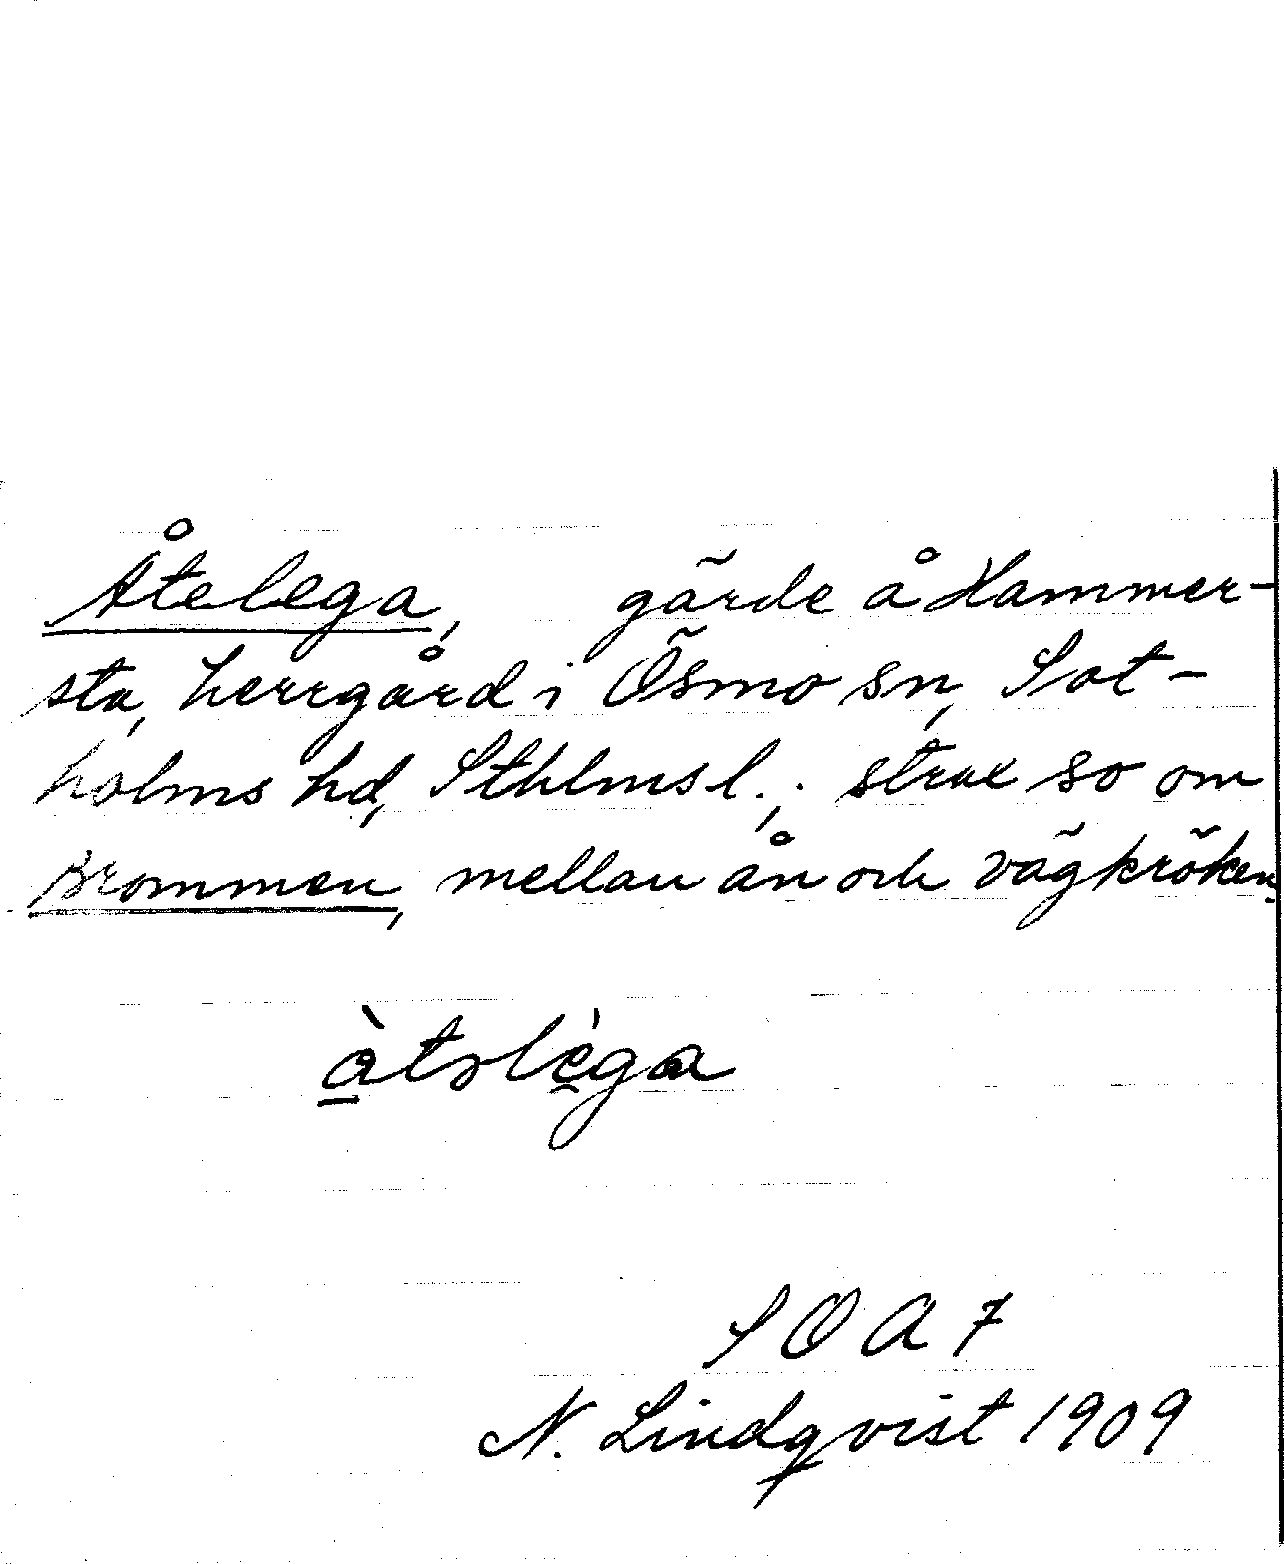 Åtelega, gärde å Hammer-
sta, herrgård i Ösmo sn, Sot-
holms hd, Sthlms l.; strax so om
Brommen, mellan ån och vägkröken.
àtəlèga
SOA 7
N. Lindqvist 1909